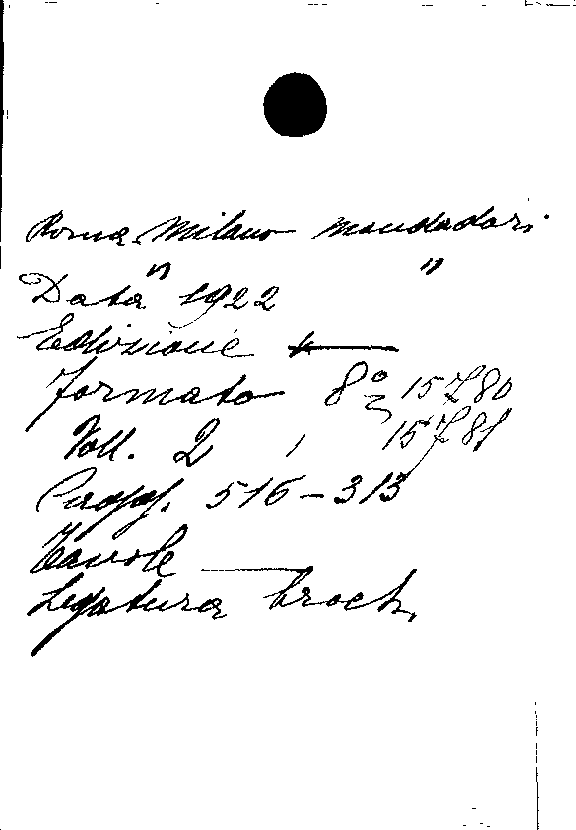 Roma Milano Mondadori
" "
Data 1922
Edizione —
Formato 8° 15780
Voll. 2 15781
Pagg. 516 – 313
Tavole —
Legatura broch.